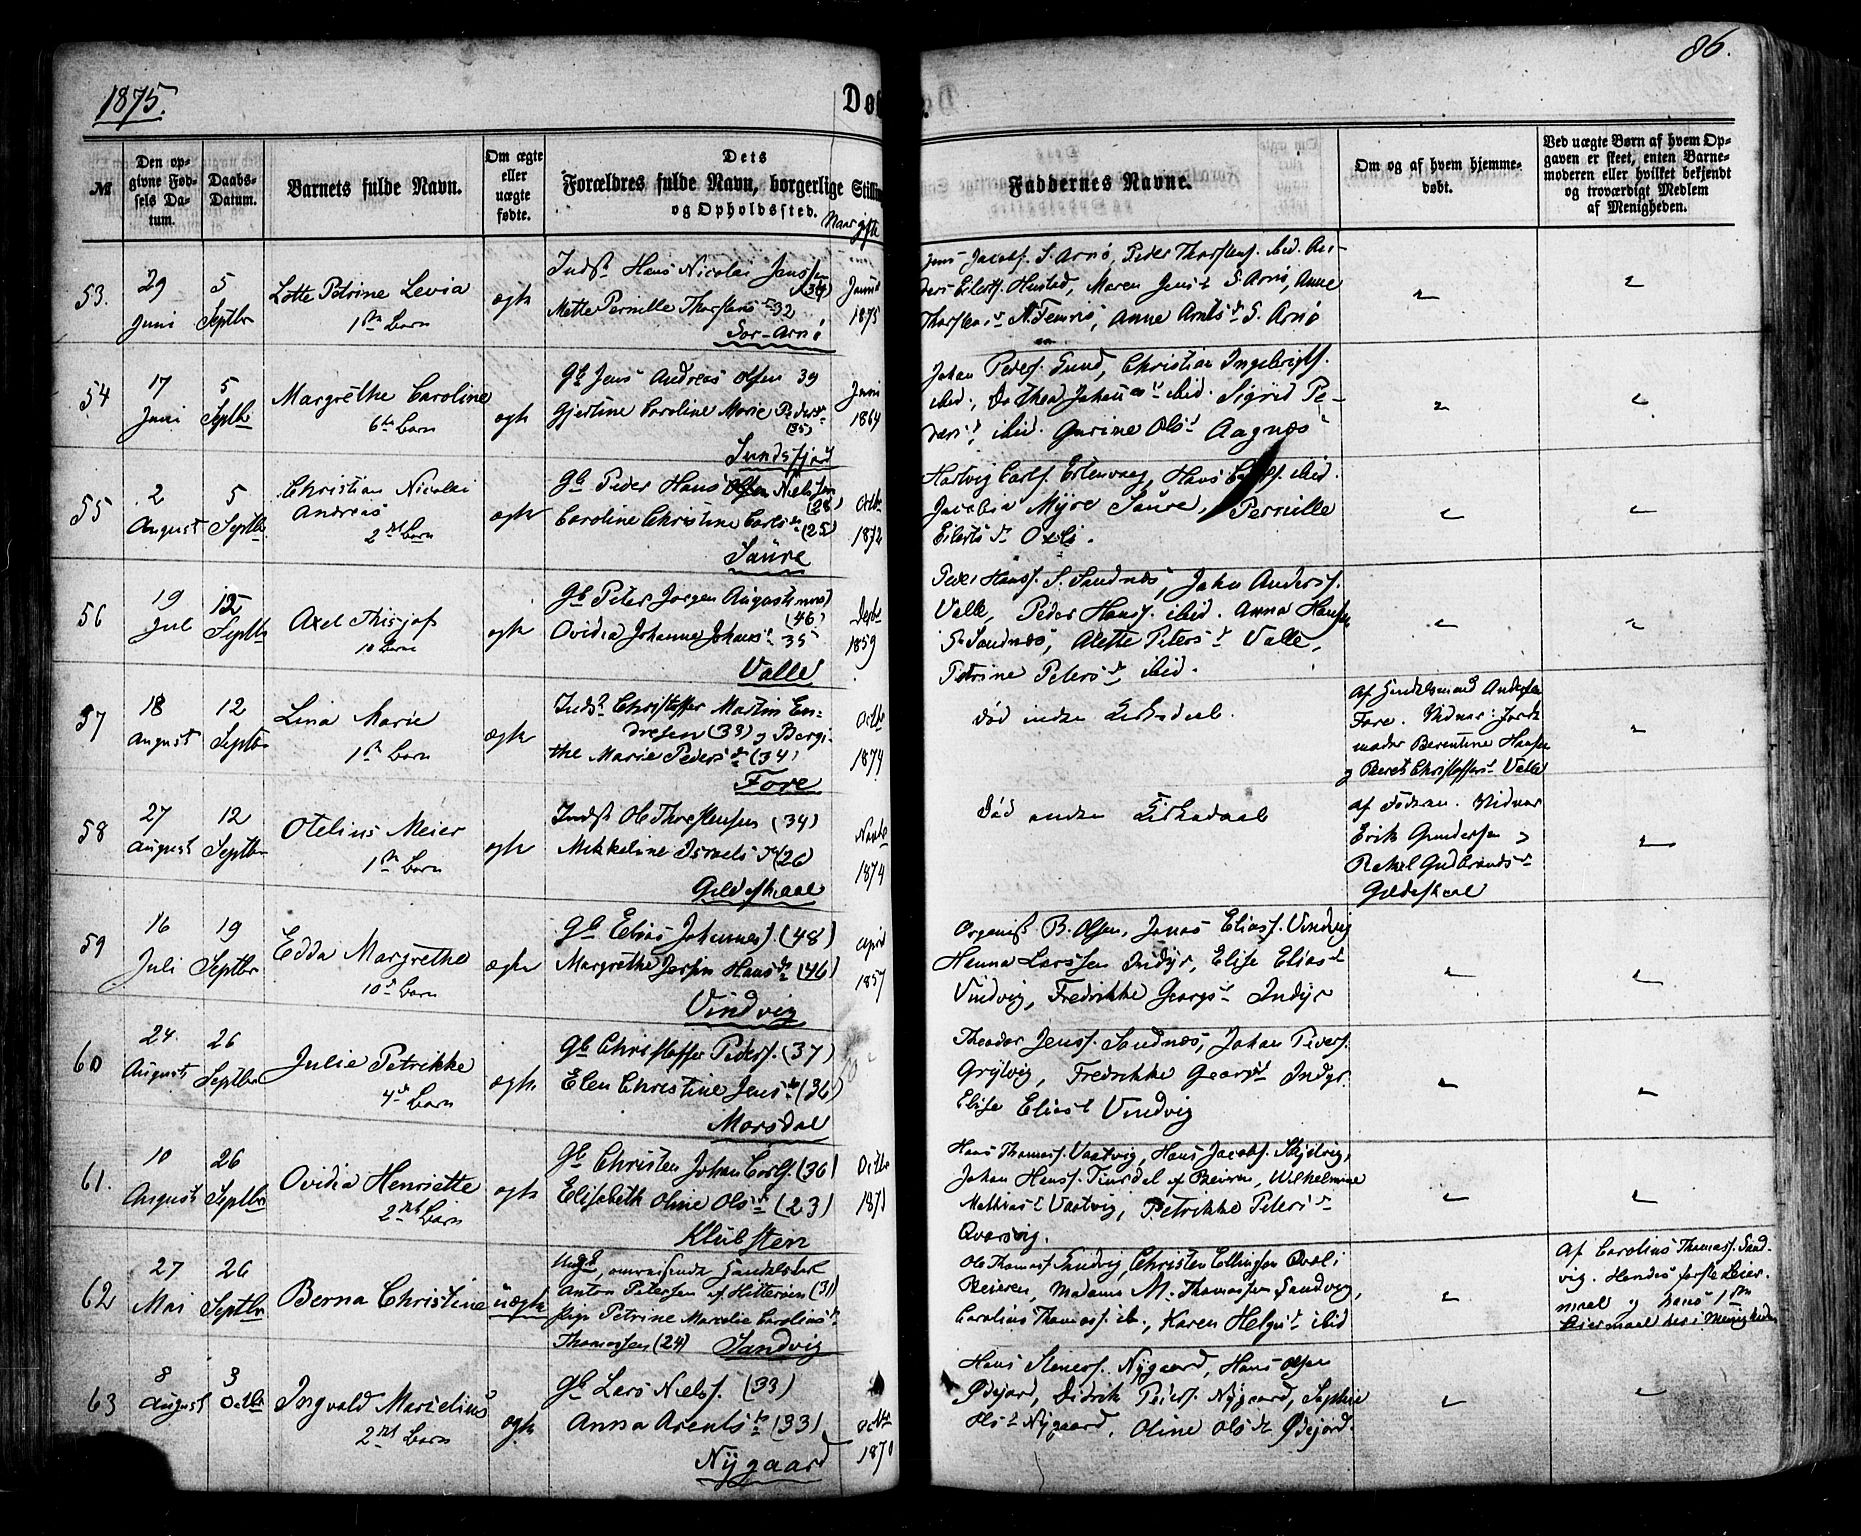 1875.
86.
Døb
№
Den op-
givne Fød-
sels Da-
tum.
Daabs-
Datum.
Barnets fulde Navn.
Om ægte
eller
uægte
fødte.
Dets
Forældres fulde Navn, borgerlige Stilling
og Opholdssted.
Naar gifte
Faddernes Navne.
Om og af hvem hjemme-
døbt.
Ved uægte Børn af hvem Op-
gaven er skeet, enten Barne-
moderen eller hvilket bekjendt
og troværdigt Medlem
af Menigheden.
53.
29
Juni
5
Septbr
Lotte Petrine Levia
1ste Barn
ægte
Indst Hans Nicolai Jenssen
(34)
Mette Pernille Thorstensd 32
Sør-Arnø
1875
Jens Jacobs. S. Arnø, Peder Thorstens. ibid. An-
ders Eilerts. Hustad, Maren Jensd S. Arnø, Anne
Thorstensd N. Femris, Anne Arntsd S. Arnø
54
17
Juni
5
Septbr
Margrethe Caroline
6te Barn
ægte
Gb Jens Andreas Olsen 39
Gjertine Caroline Marie Pedersd
(35)
Sundsfjord
Juni
1864
Johan Peders. Sund, Christian Ingebrigts.
ibid., Dorthea Johansd ibid. Sigrid Pe-
dersd, ibid. Gurine Olsd Aagnæs
55
2
August
5
Septbr
Christian Nicolai
Andreas
2det Barn
ægte
Gb Peder Hans Nielssen
(28)
Caroline Christine Carlsd (25)
Saure
Octbr
1872
Hartvig Carls. Ertenvaag, Hans Carls. ibid.
Jacobia Myre Saure, Pernille
Eilertsd Oxli.
56
19
Jul
12
Septbr
Axel Thisjof
10 Barn
ægte
Gb Peter Jørgen Augustinuss
(46)
Ovidia Johanne Johansd 35
Valle
Septbr
1859
Peder Hans. S. Sandnæs, John Anders.
Valle, Peder Hans. ibid. Anna Hansen
S. Sandnæs, Anette Petersd Valle,
Petrine Petersd ibid.
57
18
August
12
Septbr
Lina Marie
1ste Barn
ægte
Inds Christoffer Martin En-
dresen (33) og Bergi-
the Marie Pedersd (34)
Fore
Octbr
1874
Død inden Kirkedaab.
af Handelsmand Andersen
Fore. Vidner: Jorde
moder Berentine Hansen
og Beret Christoffersd Valle
58
27
August
12
Septbr
Otelius Meier
1ste Barn
ægte
Indst Ol. Thorstensen (34)
Mekkeline Israelsd (26)
Gildeskaal
Novbr
1874
Død inden Kirkedaab
Erik Gundersen og
Rakel Gudbrandsd
Gildeskaal
59
16
Juli
19
Septbr
Edda Margrethe
10de Barn
ægte
Gb Elias Johannes. (48)
Margrethe Jossin Hansd (46)
Vindvig
April
1857
Organist B. Olsen, Jonas Elias. Vindvig
Hanna Larssen Indyr, Elise Eliasd
Vindvig, Fredrikke Georgsd Indyr
60
24
August
26
Septbr
Julie Petrikke
4de Barn
ægte
Gb Christoffer Peders. (37)
Elen Christine Jensd (36)
Morsdal
Theodor Jenss. Sandnæs, Johan Peders.
Grytvig, Fredrikke Georgsd Indyr.
Elise Eliasd Vindvig
61.
10
August
26
Septbr
Ovidia Henriette
2det Barn
ægte
Gb Christen Johan Carls. (36)
Elisabeth Oline Olsd (23)
Klubsten
Octbr
1871
Hans Thomas. Vaatvig, Hans Jacobs. Skjelvig,
Johan Hans. Tverdal af Beiern, Wilhelmine
Mathiasd Vaatvig, Petrikke Petersd
Qvarsvig.
62
27
Mai
26
Septbr
Berna Christine
uægte
Ungk omreisende Handelskarl
Anton Petersen af Hitterøen (31)
Pige Petrine Marcelie Carolius
Thomassen (24) Sandvig
Ole Thomas. Sandvig, Christen Ellingsen Qval i
Beieren, Madame M. Thomassen Sandvig,
Carolius Thomass. ib., Karen Helgesd ibid
Af Carolius Thomass. Sand-
vig. Hendes første Leier-
maal og hans 1ste
Leiermaal her i Menigheden
63
8
August
3
Octbr
Ingvald Marselius
2det Barn
ægte
Gb Lars Niels. (33)
Anna Arentsd (33)
Nygaard
Octbr
1870
Hans Steners. Nygaard, Hans Olsen
Ødejord, Didrik Peders. Nygaard, Sophie
Olsd Nygaard, Oline Olsd Ødejord.